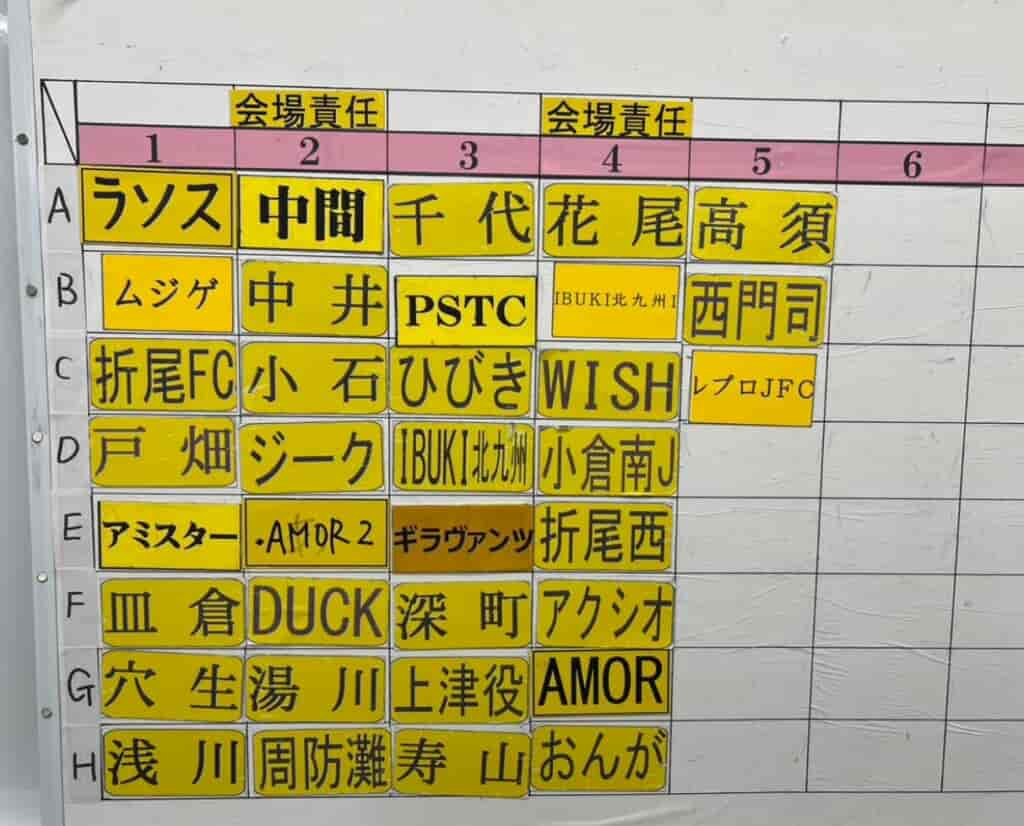 会場責任 会場責任
1 2 3 4 5 6
A ラソス 中間 千代 花尾 高須
B ムジゲ 中井 PSTC IBUKI北九州I 西門司
C 折尾FC 小石 ひびき WISH レブロJFC
D 戸畑 ジーク IBUKI北九州 小倉南J
E アミスター .AMOR2 ギラヴァンツ 折尾西
F 皿倉 DUCK 深町 アクシオ
G 穴生 湯川 上津役 AMOR
H 浅川 周防灘 寿山 おんが